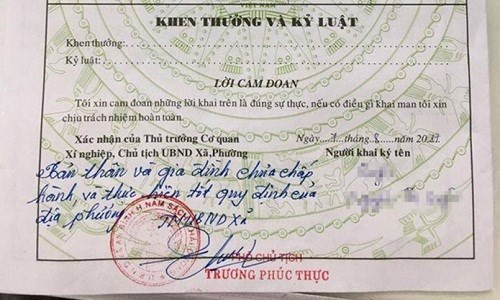 VIỆT NAM
KHEN THƯỞNG VÀ KỶ LUẬT
Khen thưởng:
Kỷ luật:
LỜI CAM ĐOAN
Tôi xin cam đoan những lời khai trên là đúng sự thực, nếu có điều gì khai man tôi xin
chịu trách nhiệm hoàn toàn.
Xác nhận của Thủ trưởng Cơ quan
Xí nghiệp, Chủ tịch UBND Xã,Phường
Ngày tháng 8 năm
Người khai ký tên
Bản thân và gia đình chưa chấp
hành và thực hiện tốt quy định của
địa phương
TM UBND Xã
H. NAM SÁCH
PHÓ CHỦ TỊCH
TRƯƠNG PHÚC THỰC